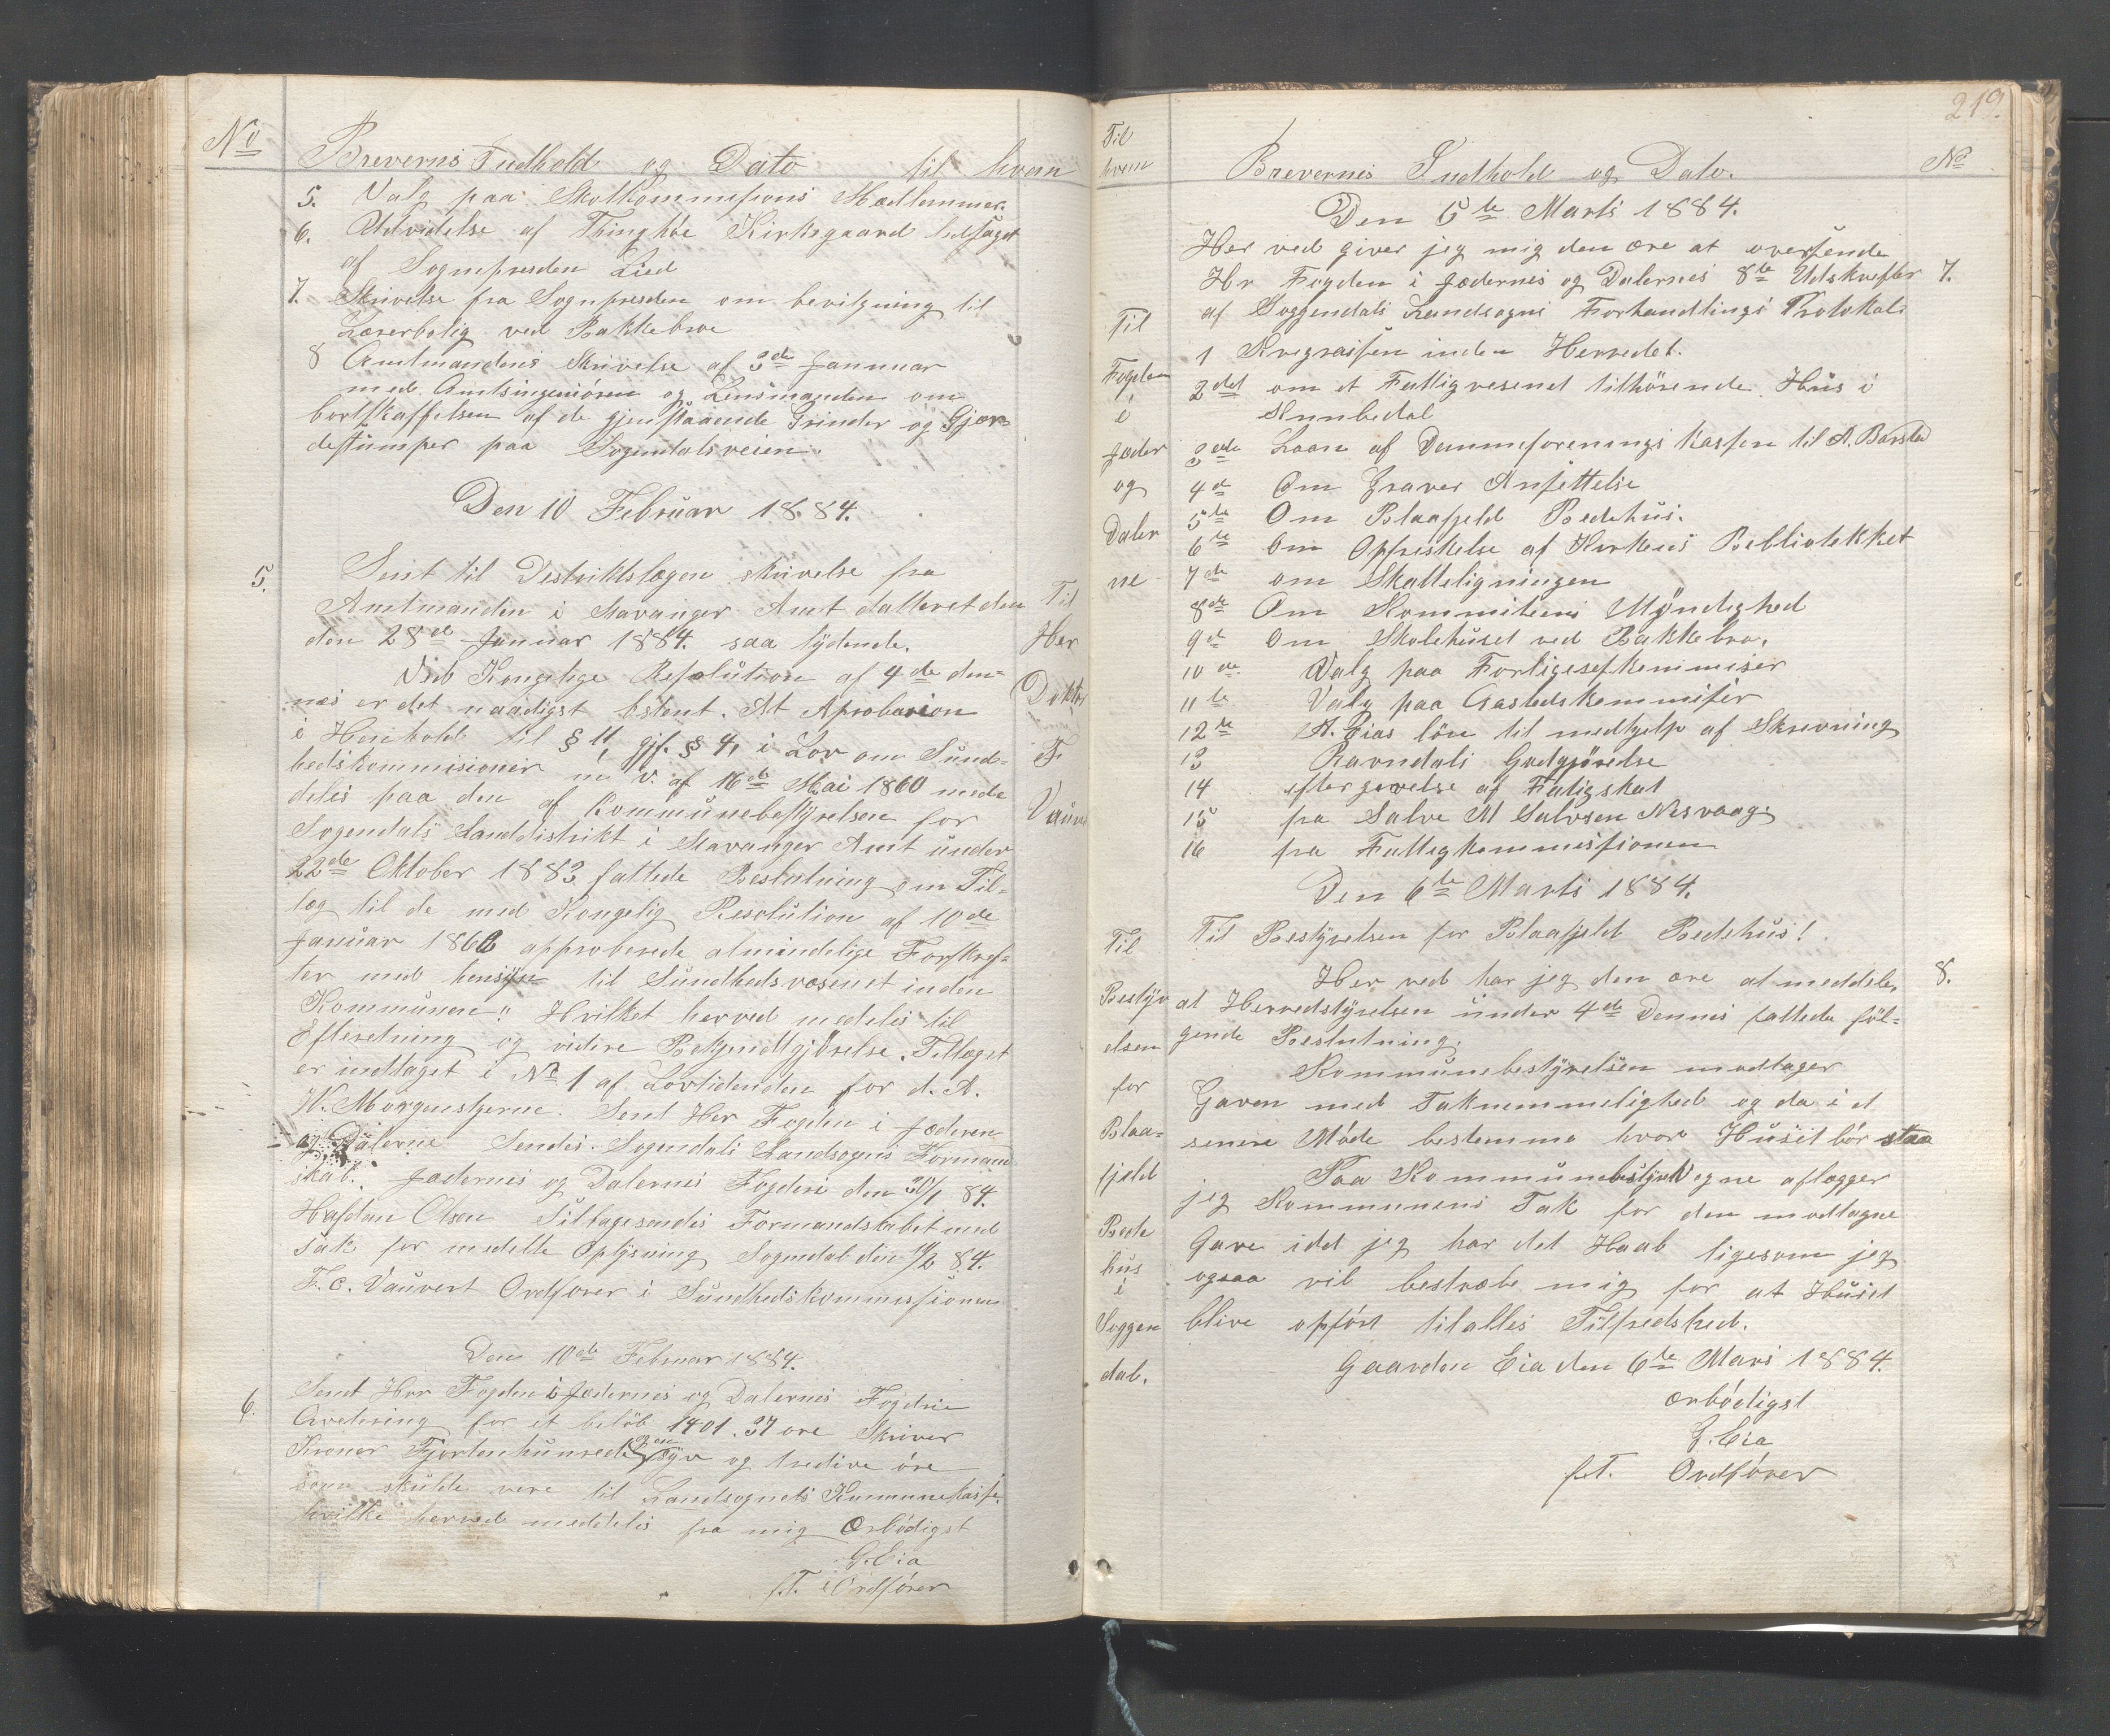 No
Brevernes Indhold og Dato til hvem
5. Valg paa Skolkommisions Medlemmer.
6. Udvidelse af Thinghóe Kirkegaard ledsaget
af Sognepresden Lied
7. Skrivelse fra Sognpresden om bevilgning til
Lærerbolig ved Bakkebroe
8 Amtmandens Skrivelse af 3de Jannuar
med Amtsingeniören og Lensmanden om
bortskaffelsen af de gjenstaaende Grinder og Gjær-
destumper paa Sogendalsveien.
Den 10 Februar 1884.
5. Sent til Destriktslægen skrivelse fra
Amtmanden i Stavanger Amt datteret den
den 28de Januar 1884. saa lydende.
Ved Kongelige Resolution af 4de den-
nes er det naadigst bstemt. At Aprobasion
i Henhold til § 11, gjf. § 4, i Lov om Sund-
hedskommisioner m v. af 16de Mai 1860 med-
deles paa den af Kommunebestyrelsen for
Sogendals Landdistrikt i Stavanger Amt under
22de Oktober 1883 fattede Beslutning om Til-
læg til de med Kongelig Resolution af 10de
Januar 1866 approberede almindelige Forskref-
ter med hensyn til Sundhedsvæsenet inden
Kommunen" Hvilket herved meddeles til
Efteretning og vidire Bekjendtgjörelse. Tillæget
er indtaget i No 1 af Lovtidenden for d. A.
W. Morgenstjerne. Sent Her Fogden i Jæderen
og Dalerne Sendes Sogendals Landsogns Formand
skab. Jædernes og Dalernes Fogderi den 30/1 84.
Halfdan Olsen Tilbagesendes Formandskabet med
Tak for medelte Oplysning Sogndal den 10/2 84.
F. C. Vauvert Ordfører i Sundhedskommissionen
Til
Her
Doktor
F
Vauvert
Den 10de Februar 1884.
6. Sent Her Fogden i Jædernes og Dalernes Fogderie
Anvisning for et belöb 1401.37 ore Skriver
Kroner Fjortenhunrede og en Syv og tredive öre
som skulde vere til Landsognets Kommunekasse
hvilke herved meddeles fra mig Ærbödigst
G. Eia
f.T. Ordfórer
219.
Til
hvem
Brevernes Indhold og Dato.
No
Den 5te Marts 1884.
Her ved giver jeg mig den ære at oversende
Hr Fogden i Jædernes og Dalernes 8te Udskrefter 7.
af Soggendals Landsogns Forhandlings Protokol
1 Kregsvæsen inden Herredet.
2det om et Fattigvesenet tilhörende Hus i
Annbedal
3de Laan af Dammeforenings kassen til A. Barsted
4de Om Graver Ansettelse
5te Om Blaafjeld Bedehus.
6te Om Opfriskelse af Kirkens Bebliotekket
7de om Skatteligningen
8de Om Kommiteens Myndighed
9de Om Skolehuset ved Bakkebro.
10de Valg paa Forligesefkommiser
11te Valg paa Gastedskommisier
12te A. Eias lön til medhjelp af Skrevning
13 Ravndals Godgjörelse
14 eftergevelse af Fatigskat
15 fra Salve M Salvesen Nesvaag
16 fra Fattigkommissionen
Til
Fogden
i
Jæder
og
Daler
ne
Den 6te Marts 1884.
Til Bestyrelsen for Blaafjeld Bedehus!
Her ved har jeg den ære at meddele, 8.
at Herredstyrelsen under 4de Dennes fattede föl-
gende Beslutning.
Kommunebestyrelsen modtager
Gaven med Taknemmelighed og da i et
senere Móde bestemme hvor Huset bör staa
Paa Kommunebestyrels Vegne aflægger
jeg Kommunens Tak for den modtagne
Gave idet jeg har det Haab ligesom jeg
ogsaa vil bestræbe mig for at Huset
blive opfört til alles Tilfredshed.
Gaarden Eia den 6te Mars 1884.
ærbödigst
G. Eia
f.T. Ordfórer
Til
Bestyr
elsen
for
Blaa-
fjeld
Bede
hus
i
Soggen
dal.